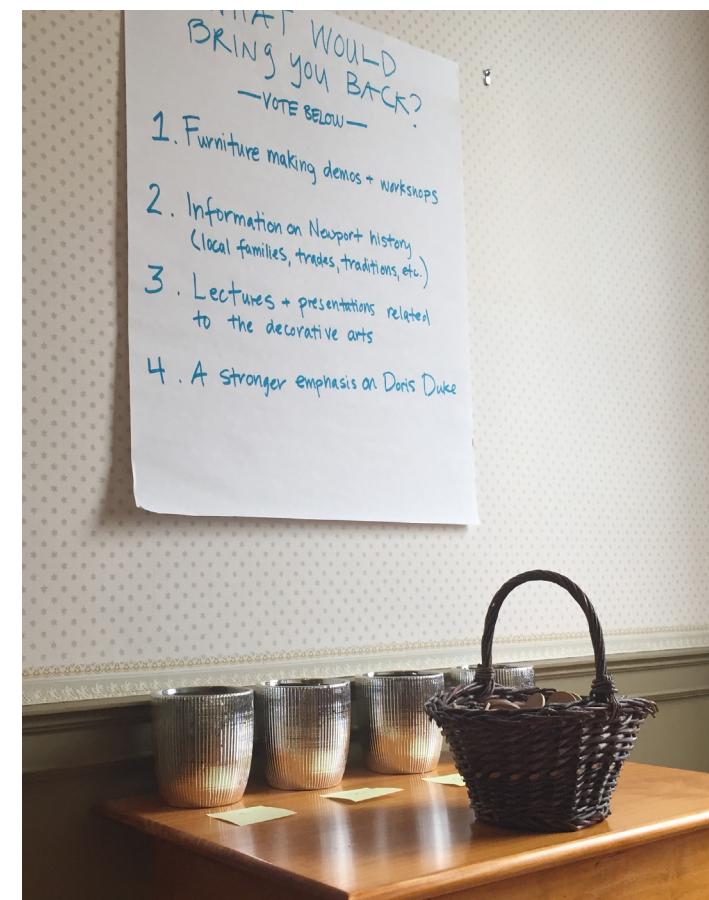 WHAT WOULD
BRING YOU BACK?
—VOTE BELOW—
1. Furniture making demos + workshops
2. Information on Newport history
(local families, trades, traditions, etc.)
3. Lectures + presentations related
to the decorative arts
4. A stronger emphasis on Doris Duke